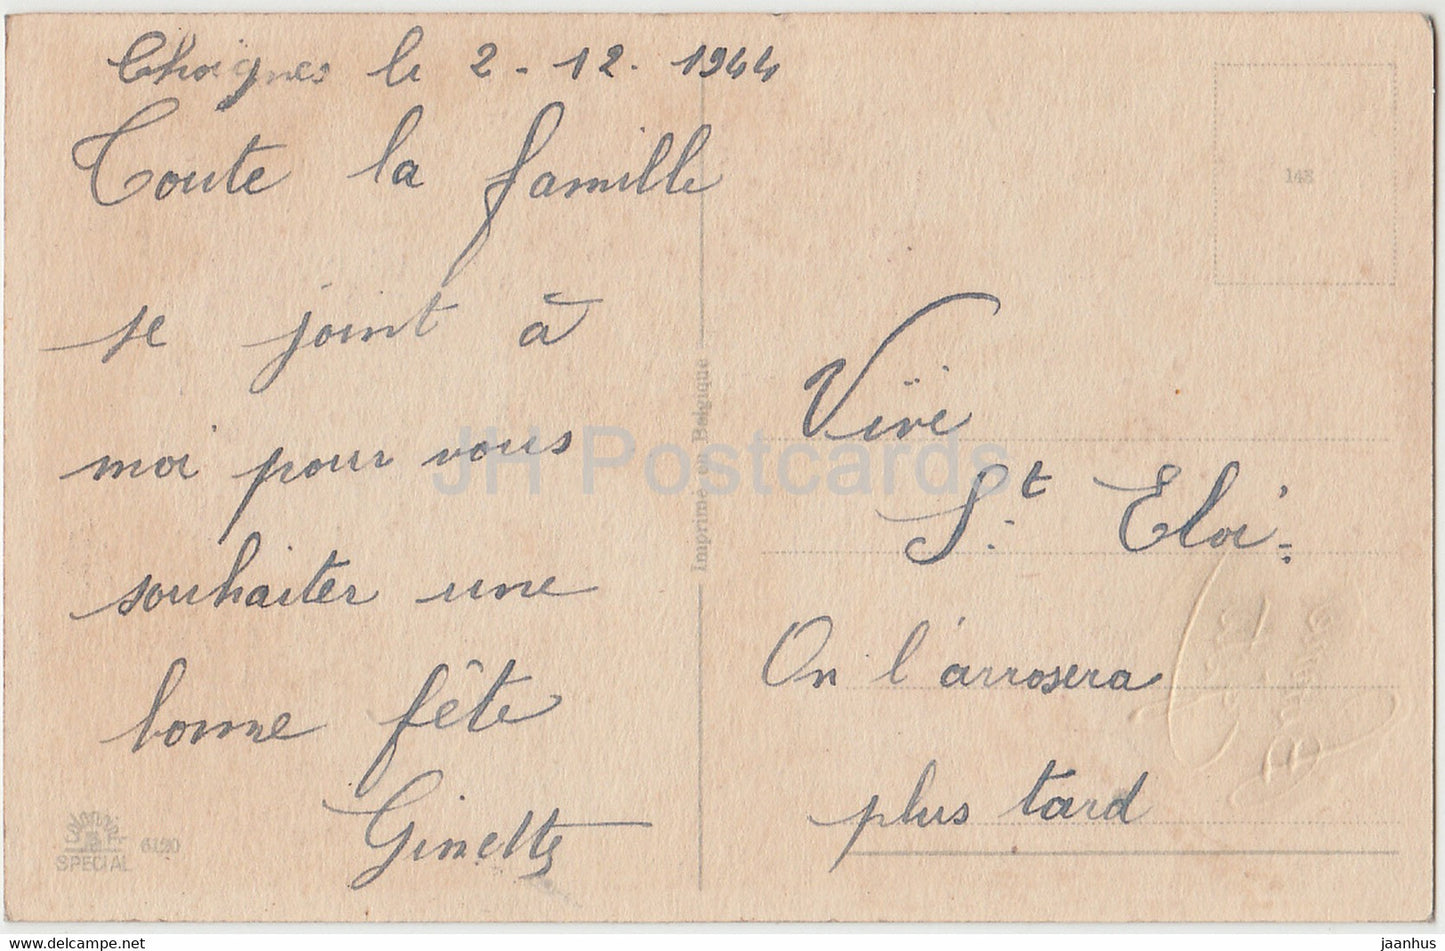 Choignes le 2-12.1944
Toute la famille
se joint à
moi pour vous
souhaiter une
bonne fête
Ginette
Vive
St Eloi
On l'arrosera
plus tard
148
Imprimé en Belgique
SPECIAL 6190
JH Postcards
www.delcampe.net
jaanhus